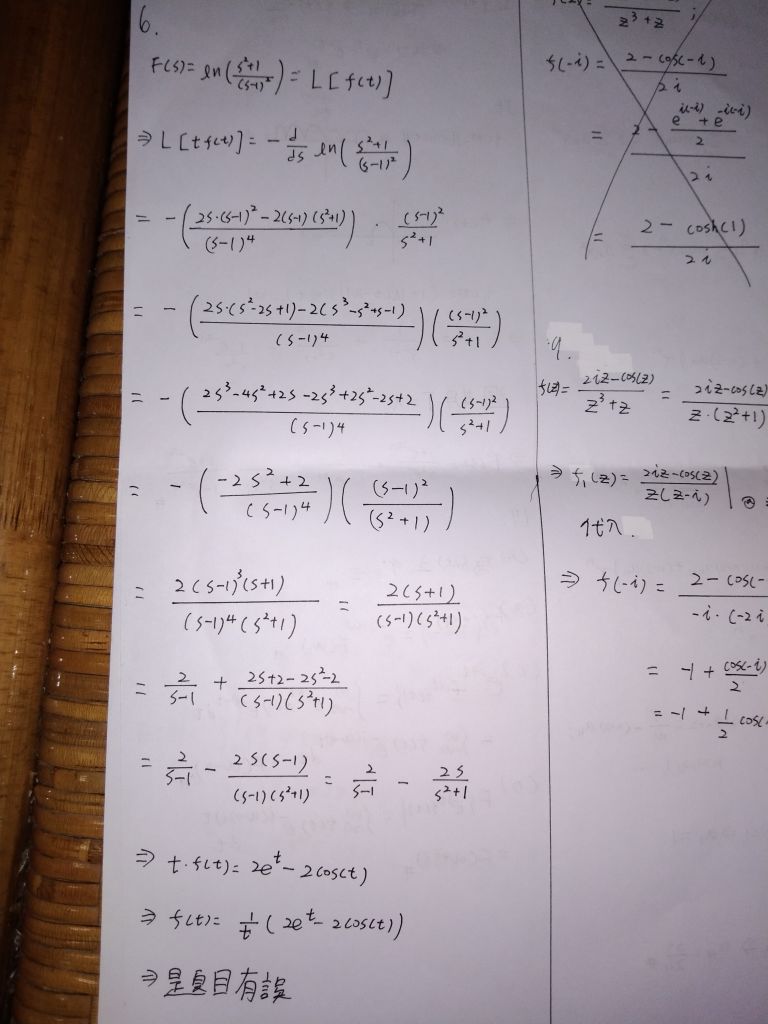 6.
F(s)= ln(\frac{s²+1}{(s-1)²}) = L[f(t)]
⇒ L[tf(t)] = -\frac{d}{ds} ln(\frac{s²+1}{(s-1)²})
= -(\frac{2s·(s-1)²-2(s-1)(s²+1)}{(s-1)⁴}) · \frac{(s-1)²}{s²+1}
= -(\frac{2s·(s²-2s+1)-2(s³-s²+s-1)}{(s-1)⁴})(\frac{(s-1)²}{s²+1})
= -(\frac{2s³-4s²+2s-2s³+2s²-2s+2}{(s-1)⁴})(\frac{(s-1)²}{s²+1})
= -(\frac{-2s²+2}{(s-1)⁴})(\frac{(s-1)²}{(s²+1)})
= \frac{2(s-1)³(s+1)}{(s-1)⁴(s²+1)} = \frac{2(s+1)}{(s-1)(s²+1)}
= \frac{2}{s-1} + \frac{2s+2-2s²-2}{(s-1)(s²+1)}
= \frac{2}{s-1} - \frac{2s(s-1)}{(s-1)(s²+1)} = \frac{2}{s-1} - \frac{2s}{s²+1}
⇒ t·f(t)= 2e^t - 2cos(t)
⇒ f(t)= \frac{1}{t}(2e^t - 2cos(t))
⇒ 題目有誤
z³+z ;
f(-i) = \frac{2-cos(-i)}{2i}
= \frac{2-\frac{e^{i(-i)}+e^{-i(-i)}}{2}}{2i}
= \frac{2-cosh(1)}{2i}
9.
f(z)= \frac{2iz-cos(z)}{z³+z} = \frac{2iz-cos(z)}{z·(z²+1)}
⇒ f₁(z)= \frac{2iz-cos(z)}{z(z-i)}|
代入
⇒ f(-i) = \frac{2-cos(-}{-i·(-2i}
= -1 + \frac{cos(-i)}{2}
= -1 + \frac{1}{2} cos(-